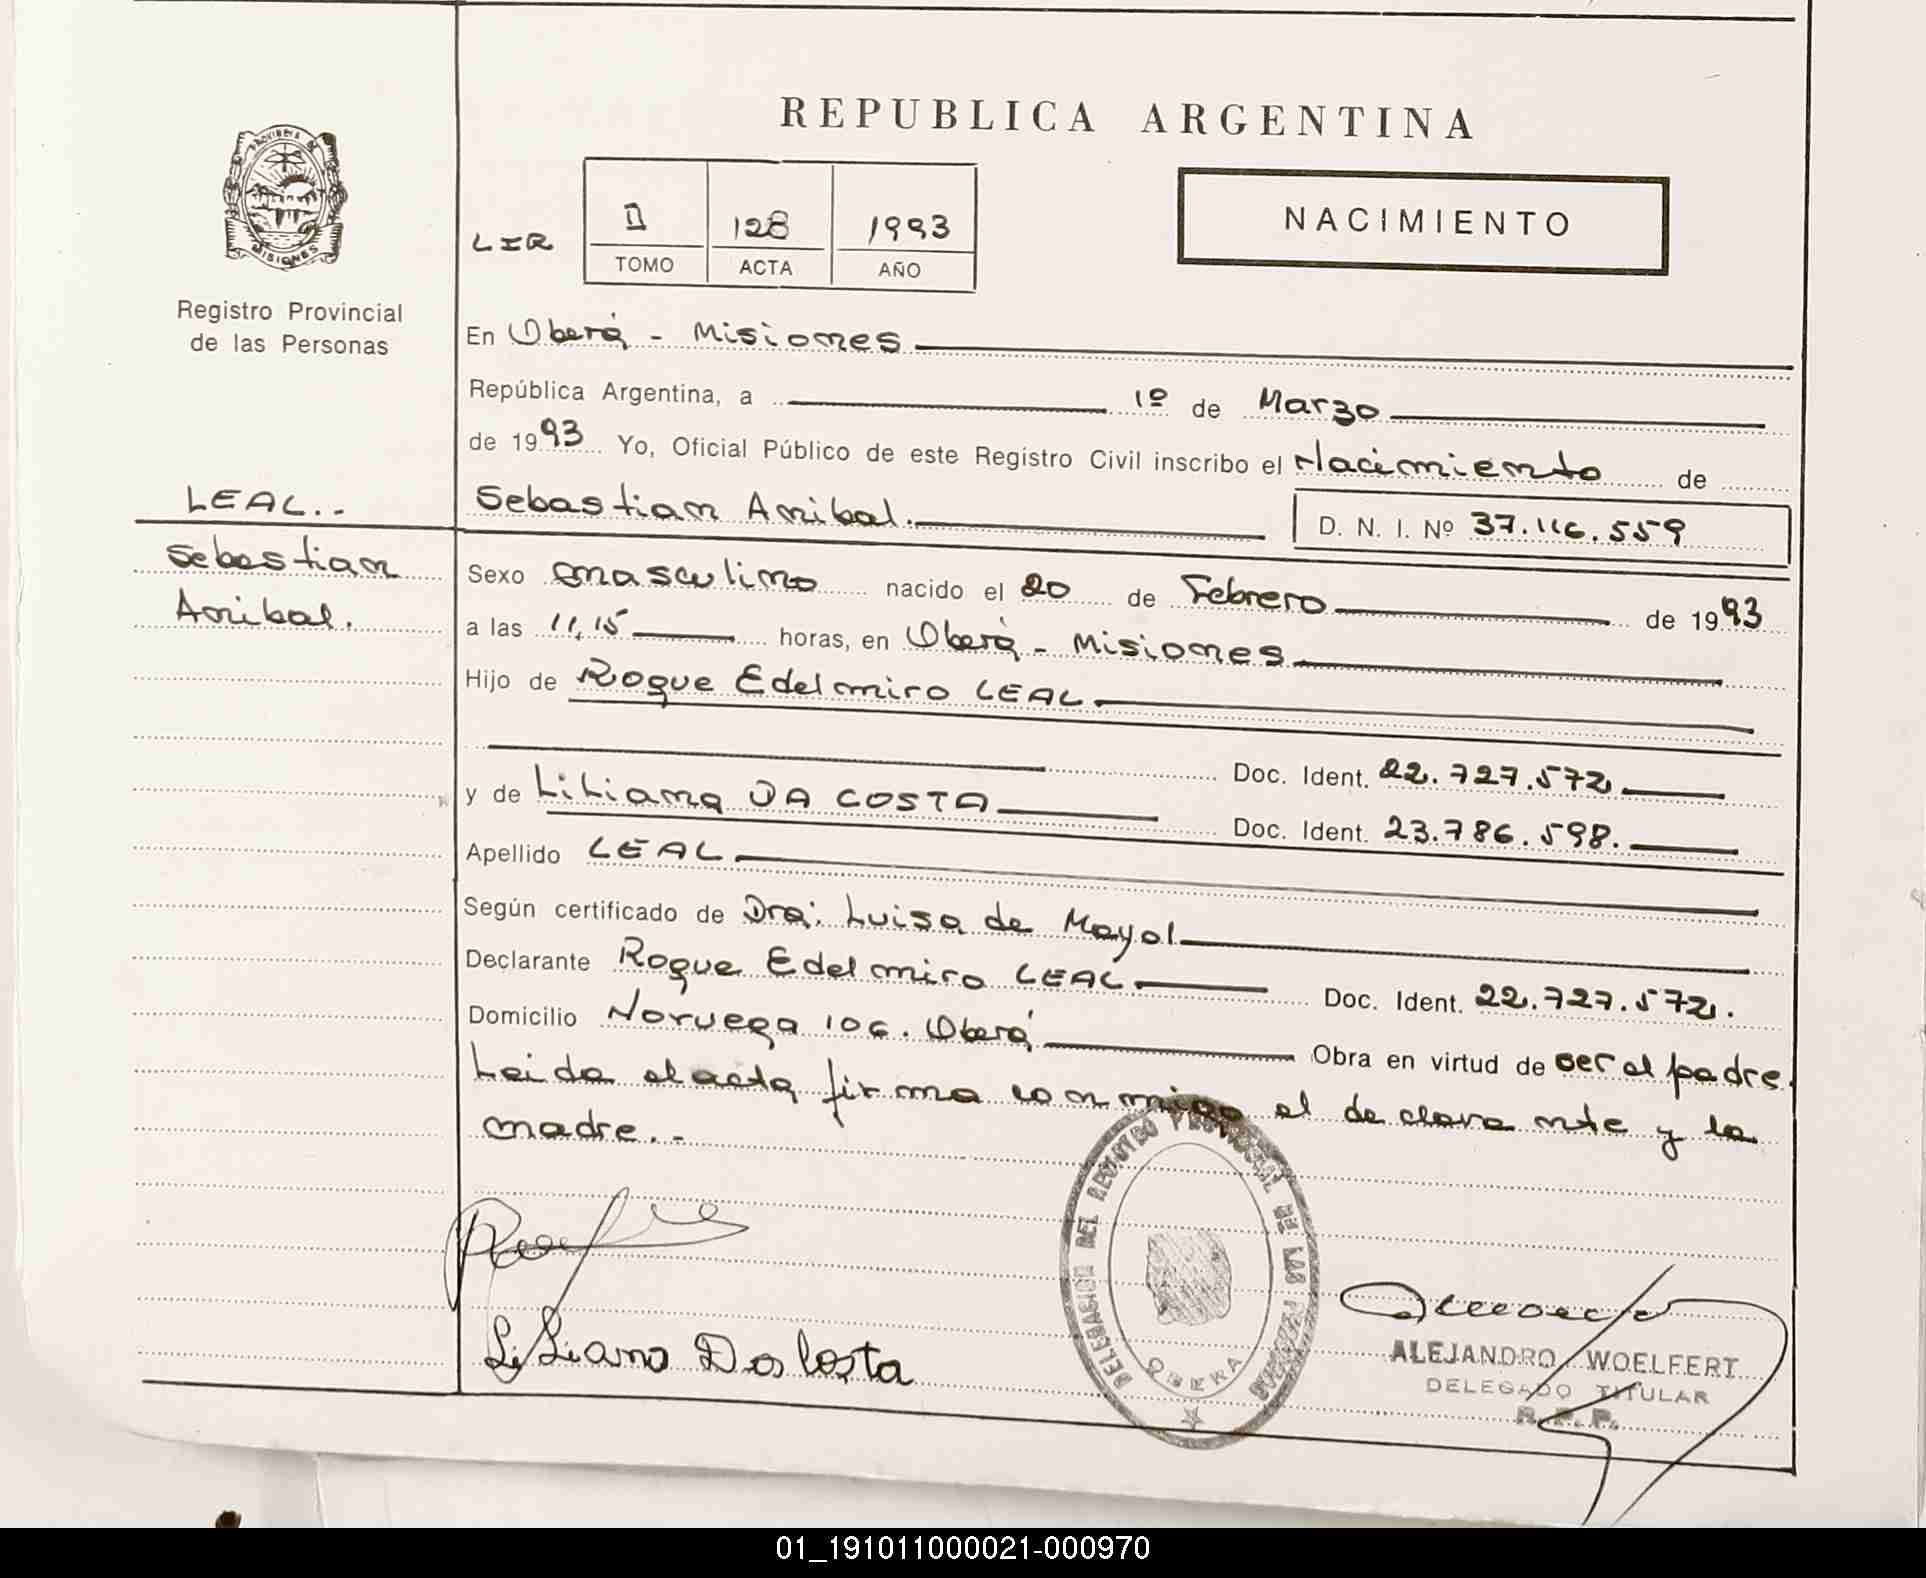 REPUBLICA ARGENTINA
PROVINCIA DE MISIONES
Registro Provincial
de las Personas
LIR
II 128 1993
TOMO ACTA AÑO
NACIMIENTO
En Oberá - Misiones
República Argentina, a 1º de Marzo
de 1993 Yo, Oficial Público de este Registro Civil inscribo el Nacimiento de
LEAL..
Sebastian Anibal.
D. N. I. Nº 37.116.559
Sebastian
Anibal.
Sexo masculino nacido el 20 de Febrero de 1993
a las 11,15 horas, en Oberá - Misiones
Hijo de Roque Edelmiro LEAL
Doc. Ident. 22.727.572
y de Liliana DA COSTA
Doc. Ident. 23.786.598.
Apellido LEAL
Según certificado de Dra: Luisa de Mayol
Declarante Roque Edelmiro LEAL Doc. Ident. 22.727.572.
Domicilio Noruega 106. Oberá Obra en virtud de ser el padre.
Leida el acta firma conmigo el declarante y la
madre..
DELEGACION DEL REGISTRO PROVINCIAL DE LAS PERSONAS
OBERA
Liliana Da Costa
ALEJANDRO WOELFERT
DELEGADO TITULAR
R. P. P.
01_191011000021-000970